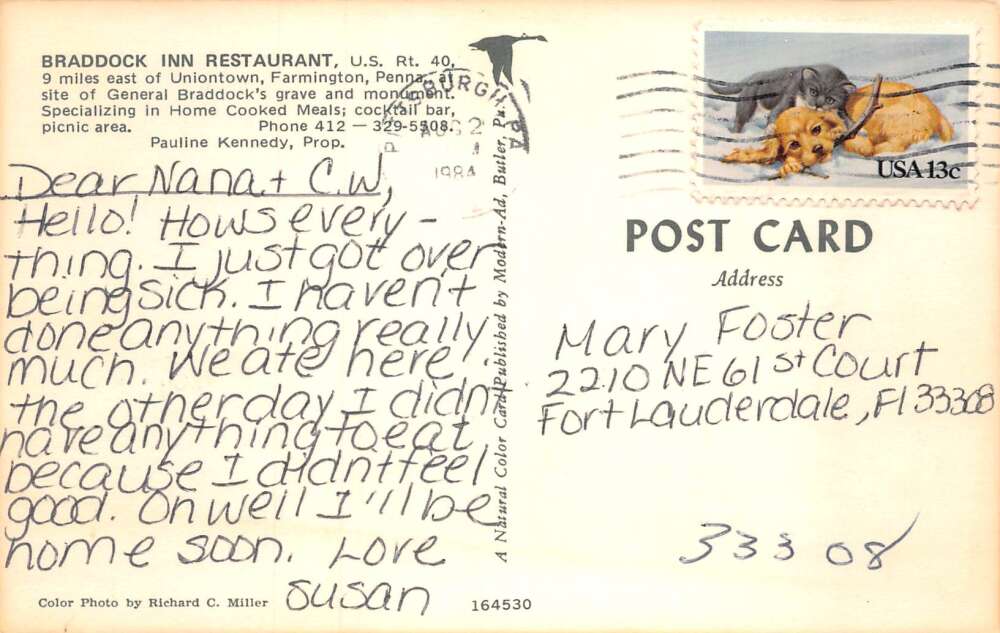 BRADDOCK INN RESTAURANT, U.S. Rt. 40,
9 miles east of Uniontown, Farmington, Penna., at
site of General Braddock's grave and monument.
Specializing in Home Cooked Meals; cocktail bar,
picnic area. Phone 412 — 329-5508.
Pauline Kennedy, Prop.
Dear Nana + C.W,
Hello! Hows every-
thing. I just got over
being sick. I haven't
done anything really
much. We ate here
the other day I didn't
have anything to eat
because I didnt feel
good. Oh well I'll be
home soon. Love
Susan
Color Photo by Richard C. Miller
164530
A Natural Color Card Published by Modern-Ad, Butler, Pa.
PITTSBURGH, PA
AUG 2
1984
USA 13c
POST CARD
Address
Mary Foster
2210 NE 61st Court
Fort Lauderdale, Fl 33308
333 08